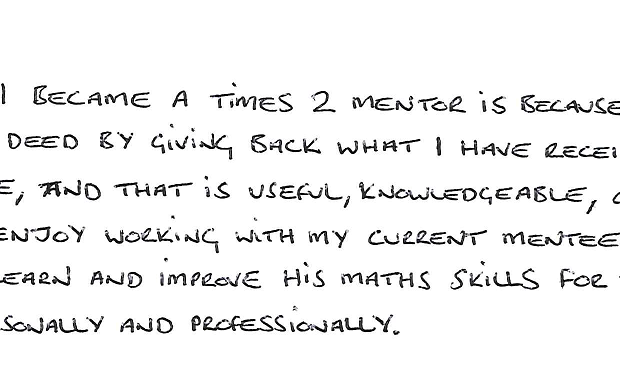 I BECAME A TIMES 2 MENTOR IS BECAUSE
DEED BY GIVING BACK WHAT I HAVE RECEI
E, AND THAT IS USEFUL, KNOWLEDGEABLE,
ENJOY WORKING WITH MY CURRENT MENTEE
EARN AND IMPROVE HIS MATHS SKILLS FOR
SONALLY AND PROFESSIONALLY.